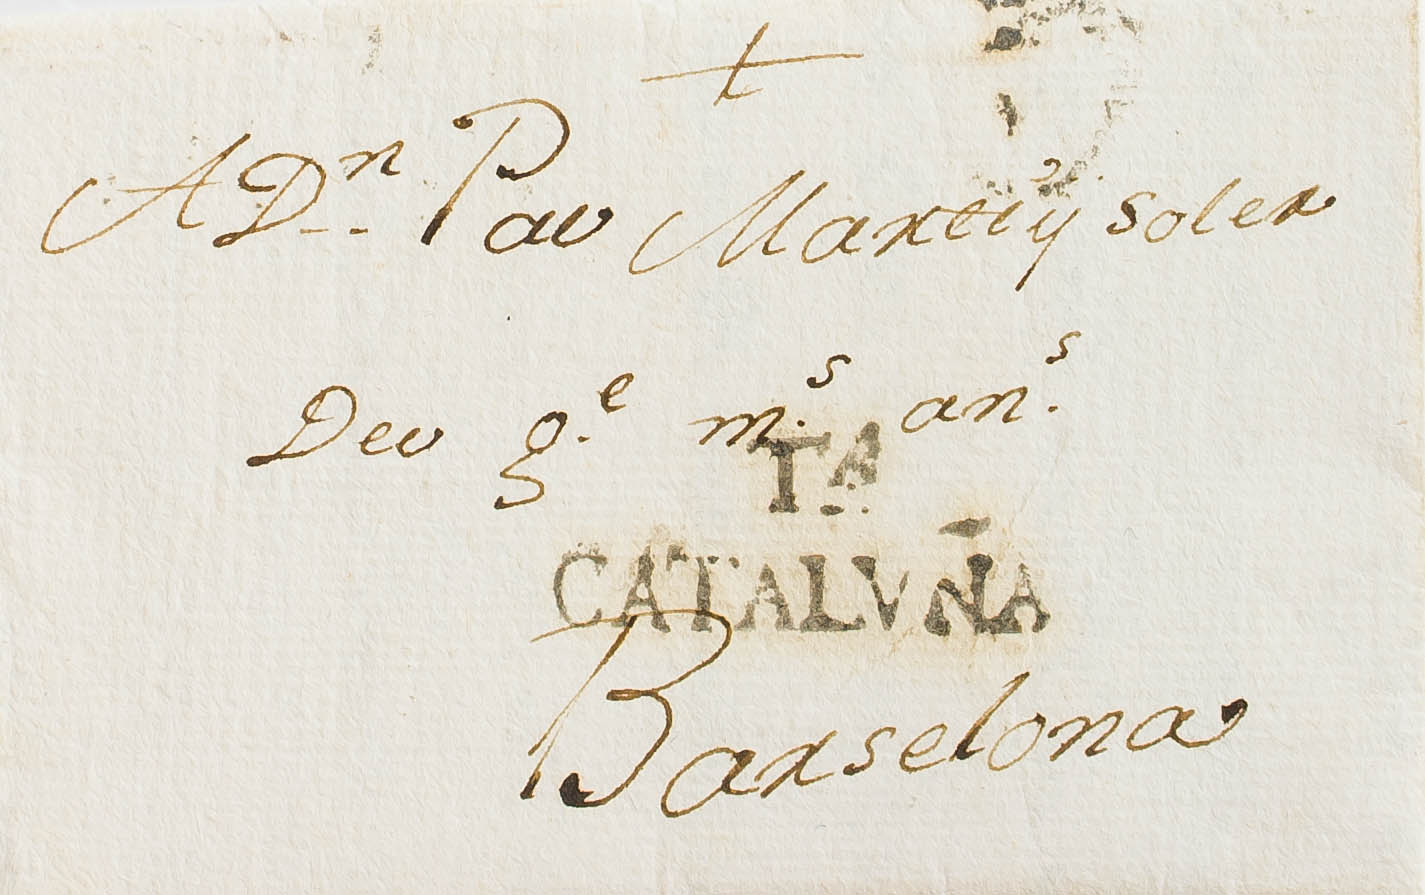 A Dn. Pau Martí y soler
Deu g.e m.s an.s
TA
CATALVÑA
Barselona